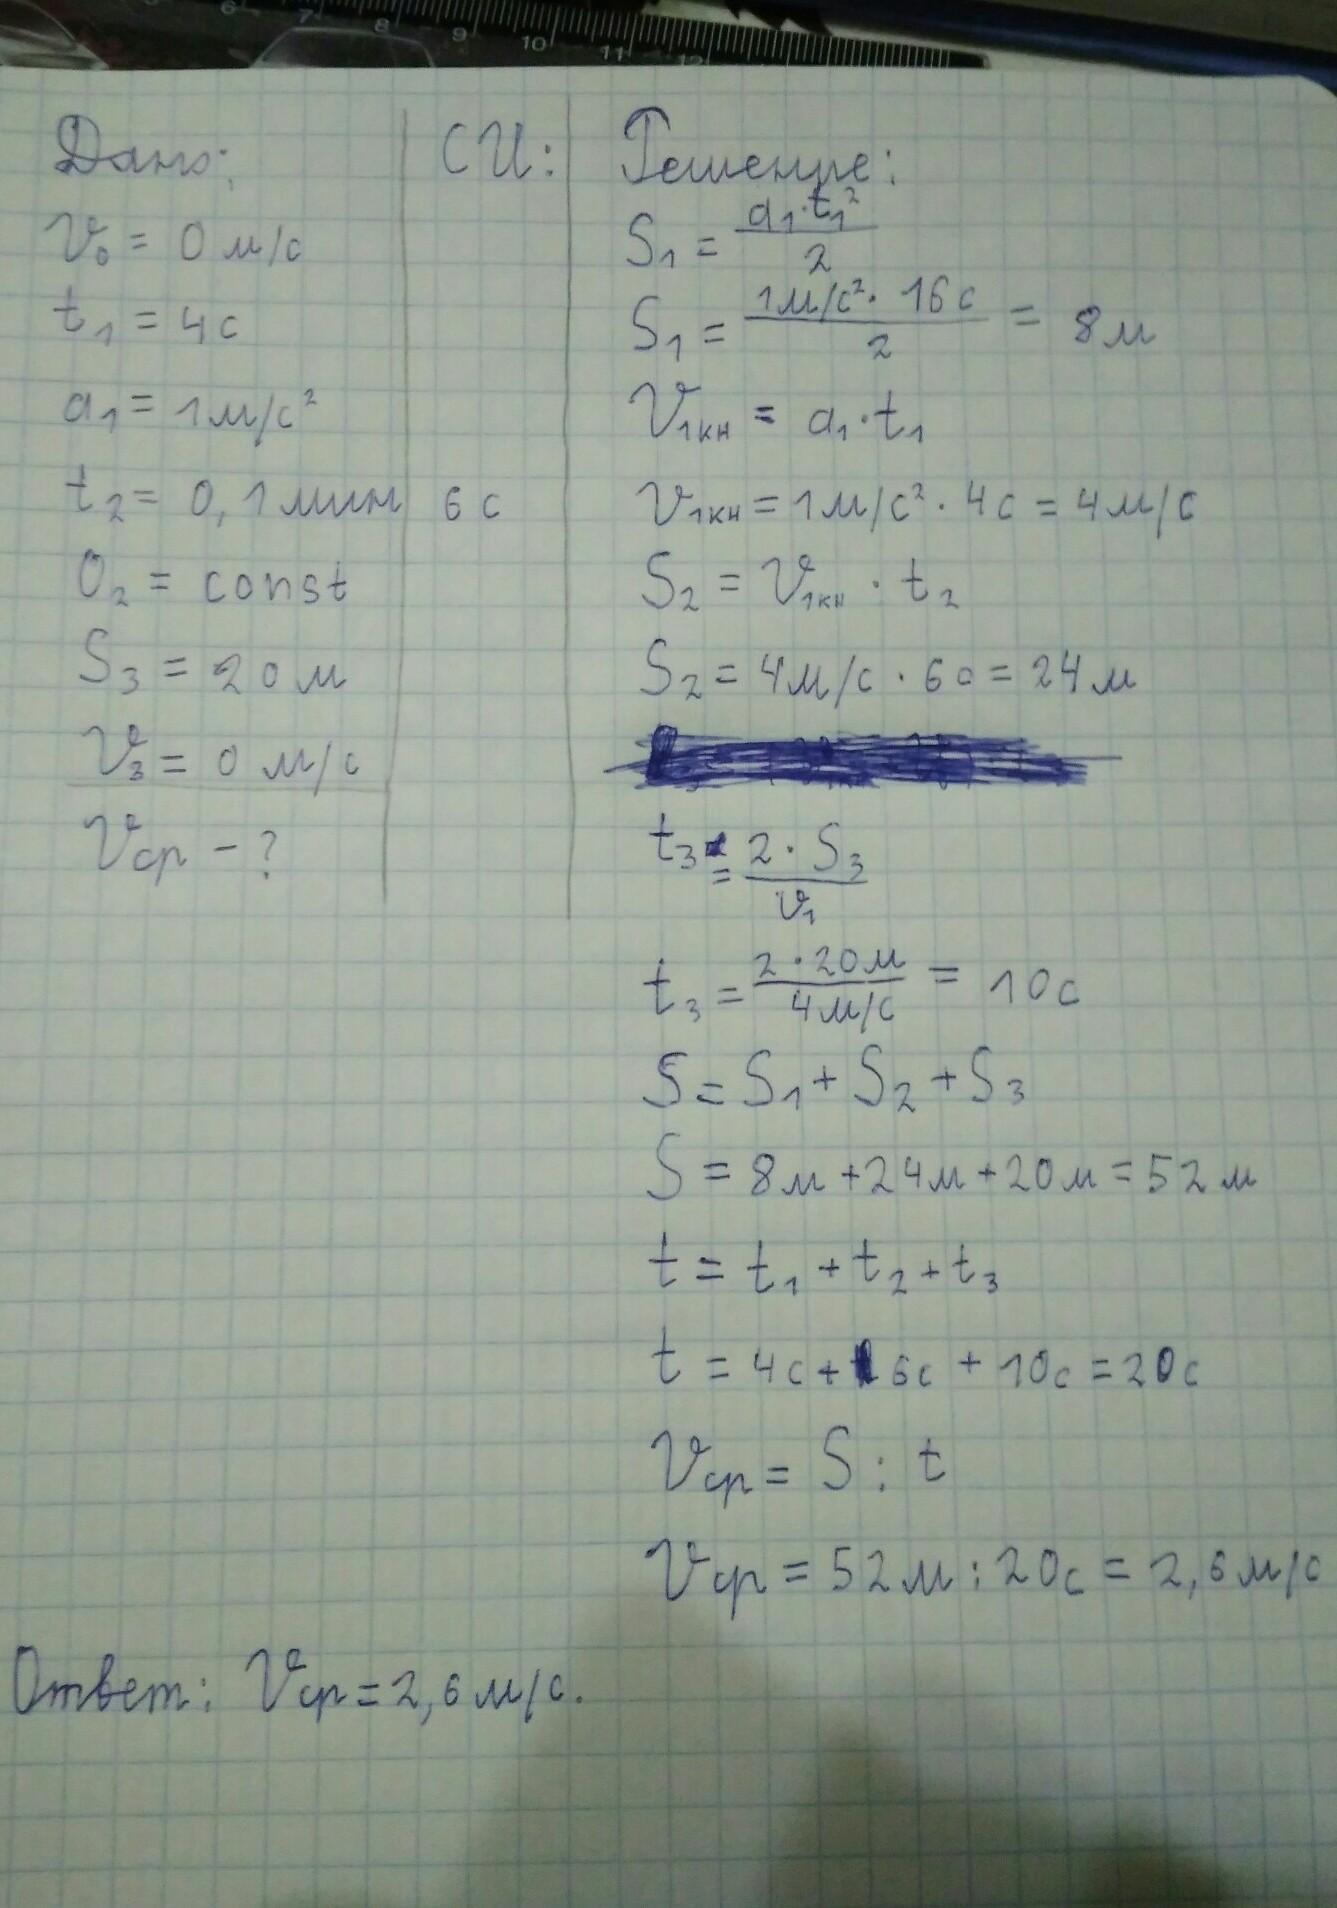 6 7 8 9 10 11 12
Дано:
V₀ = 0 м/с
t₁ = 4с
a₁ = 1м/с²
t₂ = 0,1мин
O₂ = const
S₃ = 20м
V₃ = 0 м/с
Vср - ?
СИ:
6с
Решение:
S₁ = a₁·t₁² / 2
S₁ = 1м/с² · 16с / 2 = 8м
V₁кн = a₁·t₁
V₁кн = 1м/с² · 4с = 4м/с
S₂ = V₁кн · t₂
S₂ = 4м/с · 6с = 24м
t₃ = 2 · S₃ / V₁
t₃ = 2 · 20м / 4м/с = 10с
S = S₁ + S₂ + S₃
S = 8м + 24м + 20м = 52м
t = t₁ + t₂ + t₃
t = 4с + 6с + 10с = 20с
Vср = S : t
Vср = 52м : 20с = 2,6м/с
Ответ: Vср = 2,6м/с.